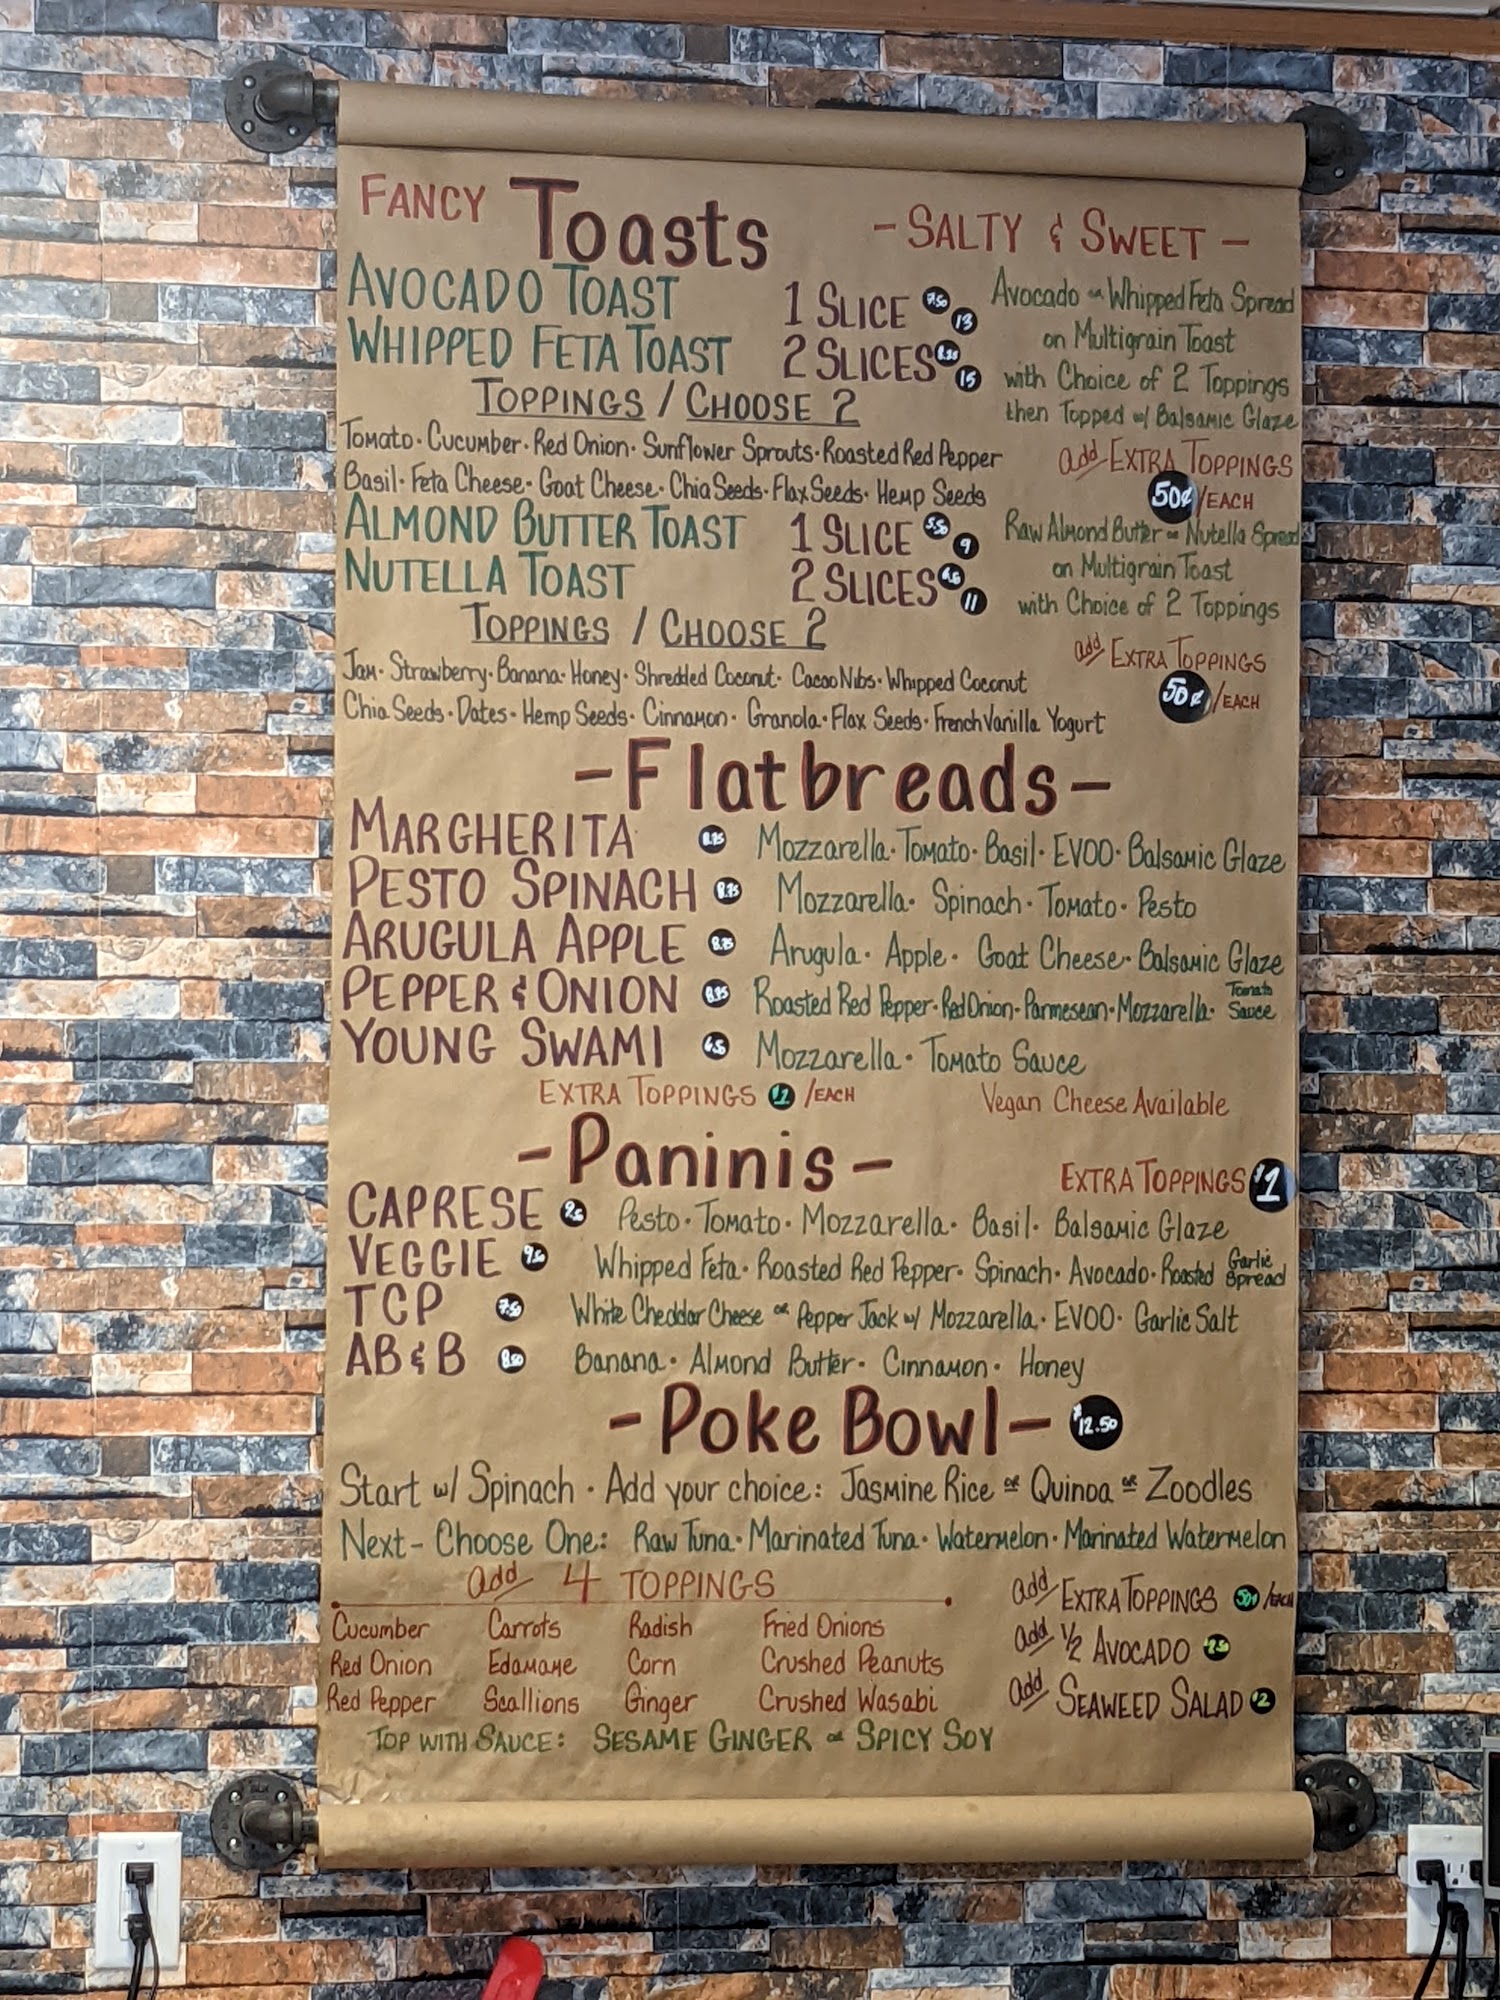 FANCY Toasts - SALTY & SWEET -
AVOCADO TOAST 1 SLICE 7.50 13
WHIPPED FETA TOAST 2 SLICES 15
Avocado or Whipped Feta Spread
on Multigrain Toast
with Choice of 2 Toppings
then Topped w/ Balsamic Glaze
TOPPINGS / CHOOSE 2
Tomato · Cucumber · Red Onion · Sunflower Sprouts · Roasted Red Pepper
Basil · Feta Cheese · Goat Cheese · Chia Seeds · Flax Seeds · Hemp Seeds
add EXTRA TOPPINGS
50¢/EACH
ALMOND BUTTER TOAST 1 SLICE 5.50 9
NUTELLA TOAST 2 SLICES 11
Raw Almond Butter or Nutella Spread
on Multigrain Toast
with Choice of 2 Toppings
TOPPINGS / CHOOSE 2
Jam · Strawberry · Banana · Honey · Shredded Coconut · Cacao Nibs · Whipped Coconut
Chia Seeds · Dates · Hemp Seeds · Cinnamon · Granola · Flax Seeds · French Vanilla Yogurt
add EXTRA TOPPINGS
50¢/EACH
- Flatbreads -
MARGHERITA 8.75 Mozzarella · Tomato · Basil · EVOO · Balsamic Glaze
PESTO SPINACH 8.75 Mozzarella · Spinach · Tomato · Pesto
ARUGULA APPLE 8.75 Arugula · Apple · Goat Cheese · Balsamic Glaze
PEPPER & ONION 8.75 Roasted Red Pepper · Red Onion · Parmesean · Mozzarella · Tomato Sauce
YOUNG SWAMI 6.50 Mozzarella · Tomato Sauce
EXTRA TOPPINGS $1 /EACH Vegan Cheese Available
- Paninis - EXTRA TOPPINGS $1
CAPRESE Pesto · Tomato · Mozzarella · Basil · Balsamic Glaze
VEGGIE 9.50 Whipped Feta · Roasted Red Pepper · Spinach · Avocado · Roasted Garlic Spread
TCP 7.50 White Cheddar Cheese or Pepper Jack w/ Mozzarella · EVOO · Garlic Salt
AB & B 8.50 Banana · Almond Butter · Cinnamon · Honey
- Poke Bowl - $12.50
Start w/ Spinach · Add your choice: Jasmine Rice or Quinoa or Zoodles
Next - Choose One: Raw Tuna · Marinated Tuna · Watermelon · Marinated Watermelon
add 4 TOPPINGS
Cucumber Carrots Radish Fried Onions
Red Onion Edamame Corn Crushed Peanuts
Red Pepper Scallions Ginger Crushed Wasabi
add EXTRA TOPPINGS 50¢ /EACH
add 1/2 AVOCADO 2.50
add SEAWEED SALAD $2
TOP WITH SAUCE: SESAME GINGER or SPICY SOY